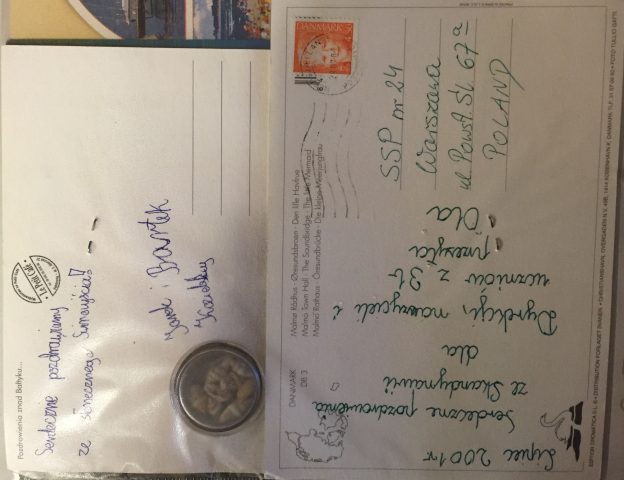 Pozdrowienia znad Bałtyku...
Serdecznie pozdrawiamy
ze słonecznego Świnoujścia!!
Bartek
DANMARK
SSP nr 24
Warszawa
ul Powst. Śl. 67a
POLAND
Lipiec 2001 r
Serdeczne pozdrowienia
ze Skandynawii
dla
Dyrekcji, nauczycieli i
uczniów z 3b
przesyła
Ola
Malmø Rådhus · Øresundsbroen · Den lille Havfrue
Malmö Town Hall · The Soundbridge · The Little Mermaid
Malmö Rathaus · Öresundbrücke · Die kleine Meerjungfrau
DANMARK
DB 3